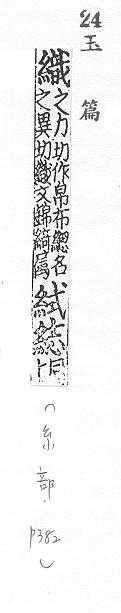 24
玉篇
織之力切作帛布緫名
之異切織文錦綺屬䋕䌟同上
(糸部.
P382)